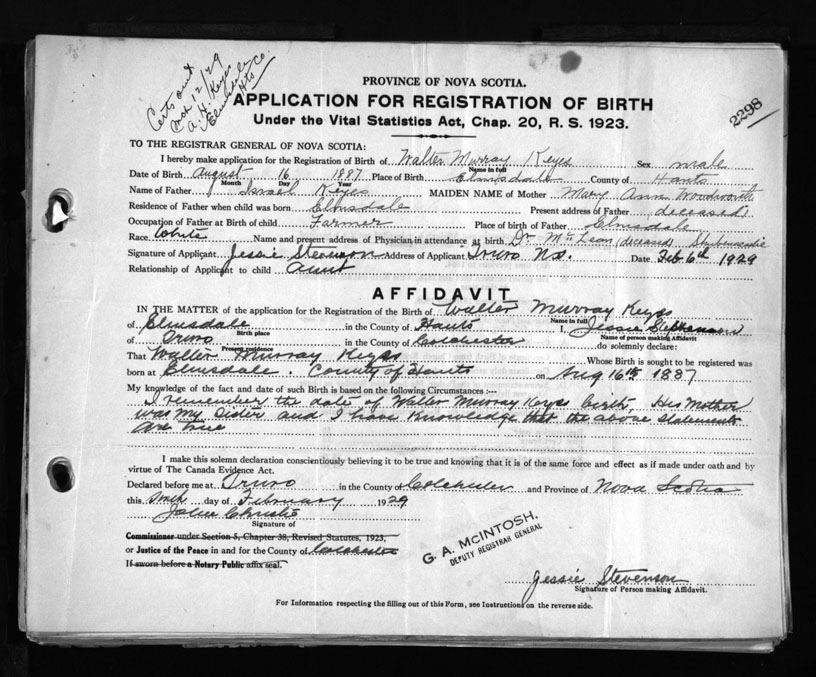 Certs out
Mch 12/29
A. H. Keys
Elmsdale
Hts Co.
2298
PROVINCE OF NOVA SCOTIA.
APPLICATION FOR REGISTRATION OF BIRTH
Under the Vital Statistics Act, Chap. 20, R. S. 1923.
TO THE REGISTRAR GENERAL OF NOVA SCOTIA:
I hereby make application for the Registration of Birth of Walter Murray Keyes Sex male
Name in full
Date of Birth August 16 1887 Place of Birth Elmsdale County of Hants
Month Day Year
Name of Father Israel Keyes MAIDEN NAME of Mother Mary Ann Woodworth
Residence of Father when child was born Elmsdale Present address of Father (deceased)
Occupation of Father at Birth of child Farmer Place of birth of Father Elmsdale
Race White Name and present address of Physician in attendance at birth Dr McLean (deceased) Shubenacadie
Signature of Applicant Jessie Stevenson Address of Applicant Truro N.S. Date Feb 6th 1929
Relationship of Applicant to child Aunt
AFFIDAVIT
IN THE MATTER of the application for the Registration of the Birth of Walter Murray Keyes
Name in full
of Elmsdale in the County of Hants I, Jessie
Birth place Name of person making Affidavit
of Truro in the County of Colchester do solemnly declare:
Present residence
That Walter Murray Keyes Whose Birth is sought to be registered was
born at Elmsdale. County of Hants on Aug 16th 1887
My knowledge of the fact and date of such Birth is based on the following Circumstances :—
I remember the date of Walter Murray Keyes birth. His Mother
was My Sister and I have Knowledge that the above statements
are true
I make this solemn declaration conscientiously believing it to be true and knowing that it is of the same force and effect as if made under oath and by
virtue of The Canada Evidence Act.
Declared before me at Truro in the County of Colchester and Province of Nova Scotia
this day of February 1929
Christie
Signature of
Commissioner under Section 5, Chapter 38, Revised Statutes, 1923,
or Justice of the Peace in and for the County of Colchester
If sworn before a Notary Public affix seal.
G. A. McINTOSH,
DEPUTY REGISTRAR GENERAL
Jessie Stevenson
Signature of Person making Affidavit.
For Information respecting the filling out of this Form, see Instructions on the reverse side.